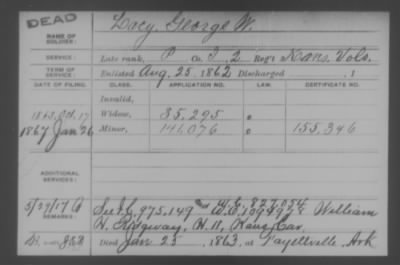 DEAD
NAME OF SOLDIER: Lacy, George W.
SERVICE: Late rank, P Co. I, 2 Reg't Kans. Vols.
TERM OF SERVICE: Enlisted Aug. 25 1862 Discharged , 1
DATE OF FILING. CLASS. APPLICATION NO. LAW. CERTIFICATE NO.
Invalid,
1863, Oct. 17 Widow, 35.295
1867 Jan 26 Minor, 141.076 155.346
ADDITIONAL SERVICES:
5/29/17 W.C. 827.054
REMARKS: 975.149 William
H. Ridgway, H. 11, Kans. Cav.
Died Jan 25, 1863, at Fayettville, Ark